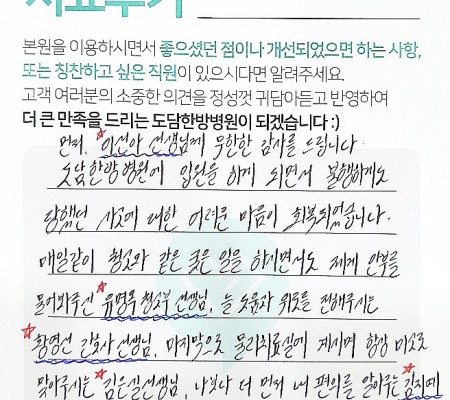 치료후기
본원을 이용하시면서 좋으셨던 점이나 개선되었으면 하는 사항,
또는 칭찬하고 싶은 직원이 있으시다면 알려주세요.
고객 여러분의 소중한 의견을 정성껏 귀담아듣고 반영하여
더 큰 만족을 드리는 도담한방병원이 되겠습니다 :)
먼저, 이선아 선생님께 무한한 감사를 드립니다.
도담한방병원에 입원을 하게 되면서 불행하게도
당했던 사고에 대한 어려운 마음이 회복되었습니다.
매일같이 청소와 같은 궂은 일을 하시면서도 제게 안부를
물어봐주신 유명옥 청소부 선생님, 늘 도움과 위로를 전해주시는
황영선 간호사 선생님, 마지막으로 물리치료실에 계시며 항상 미소로
맞아주시는 김은실선생님, 나보다 더 먼저 내 편의를 알아주는 김지예